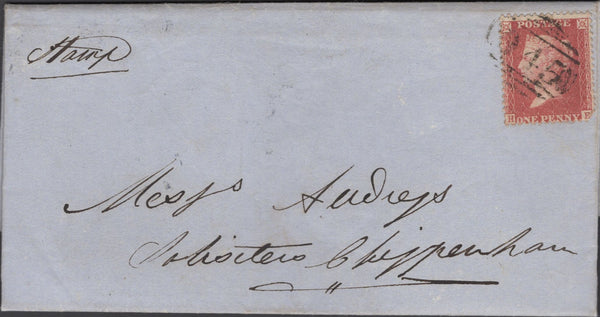 Stamp
POSTAGE
ONE PENNY
Messrs Audrys
Solicitors Chippenham